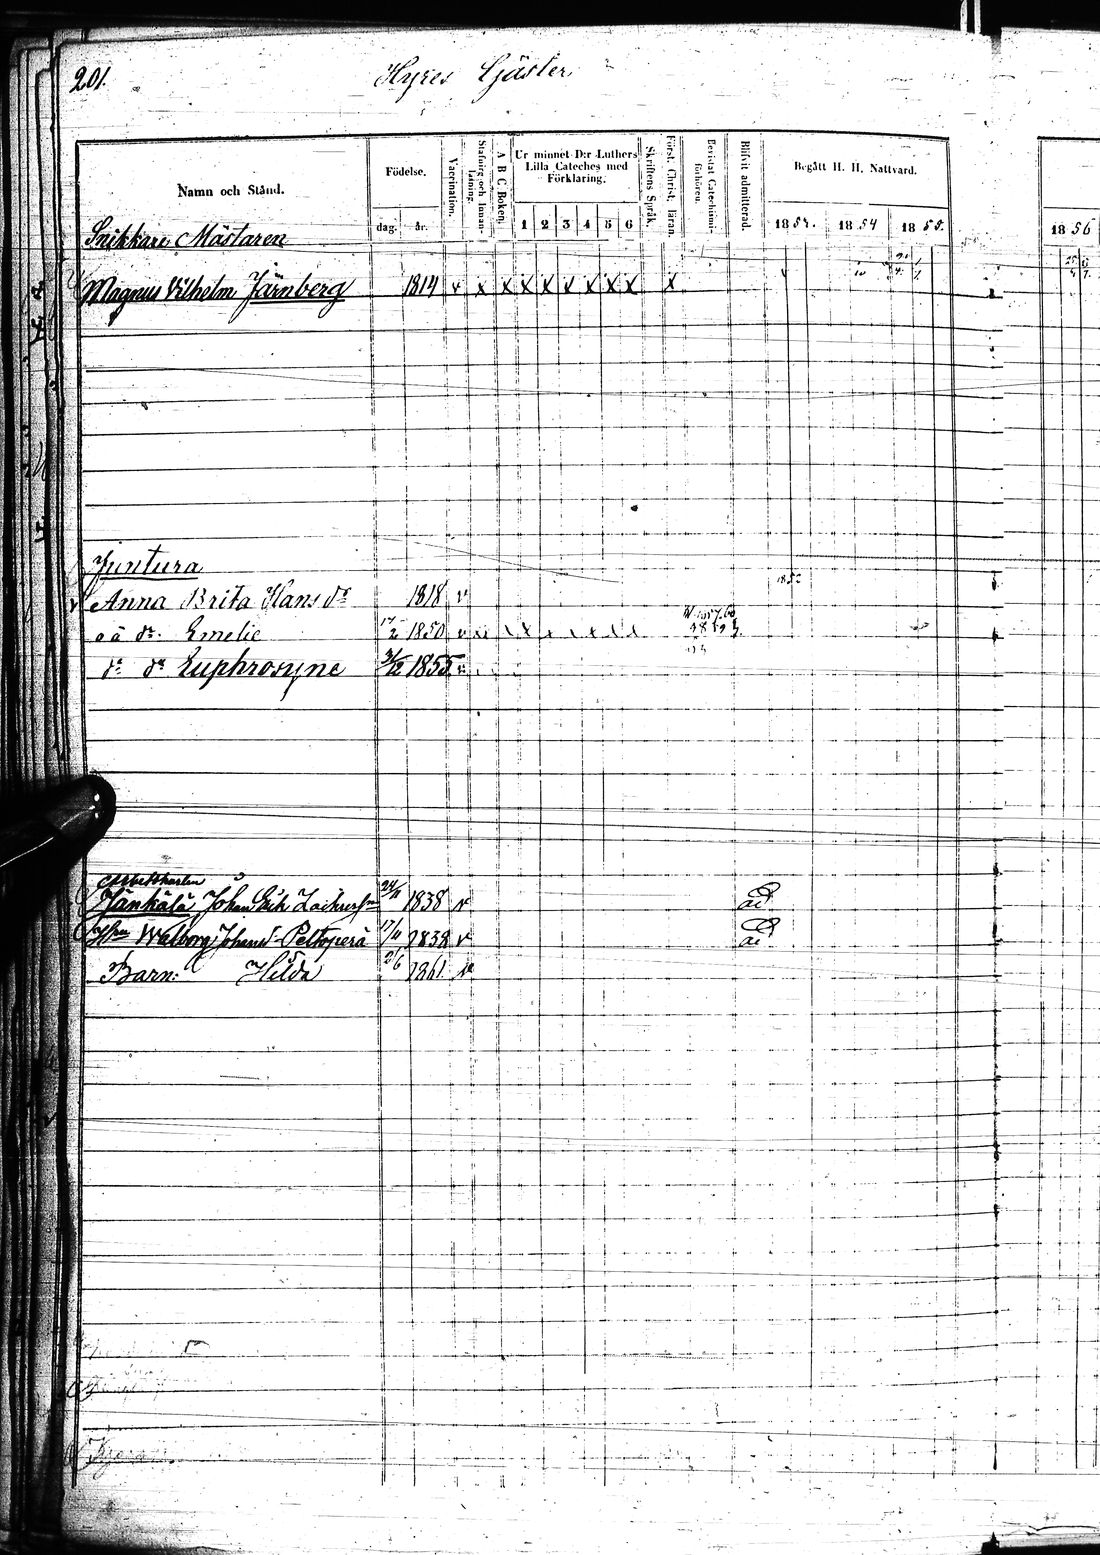 201.
Hyres Gäster
Namn och Stånd.
Födelse.
dag. år.
Vaccination.
Stafning och Innanläsning.
A B C Boken.
Ur minnet D:r Luthers Lilla Cateches med Förklaring.
1 2 3 4 5 6
Skriftens Språk.
Först. Christ. läran.
Bevistat Catechismiförhören.
Blifvit admitterad.
Begått H. H. Nattvard.
1854 1855. 1856
Snikkare Mästaren
Magnus Vilhelm Järnberg 1814 v x x x x v x x x x
Juntura
1852
Anna Brita Hans dr 1818 v
oä dr. Emelie 17/2 1850 v
dr dr Euphrosyne 1855
Arbetskarlen
Jänkälä Johan Erik 24/11 1838 v
Walborg Johansd. Peltoperä 17/11 1838 v
Barn: Hilda 2/6 1861 v